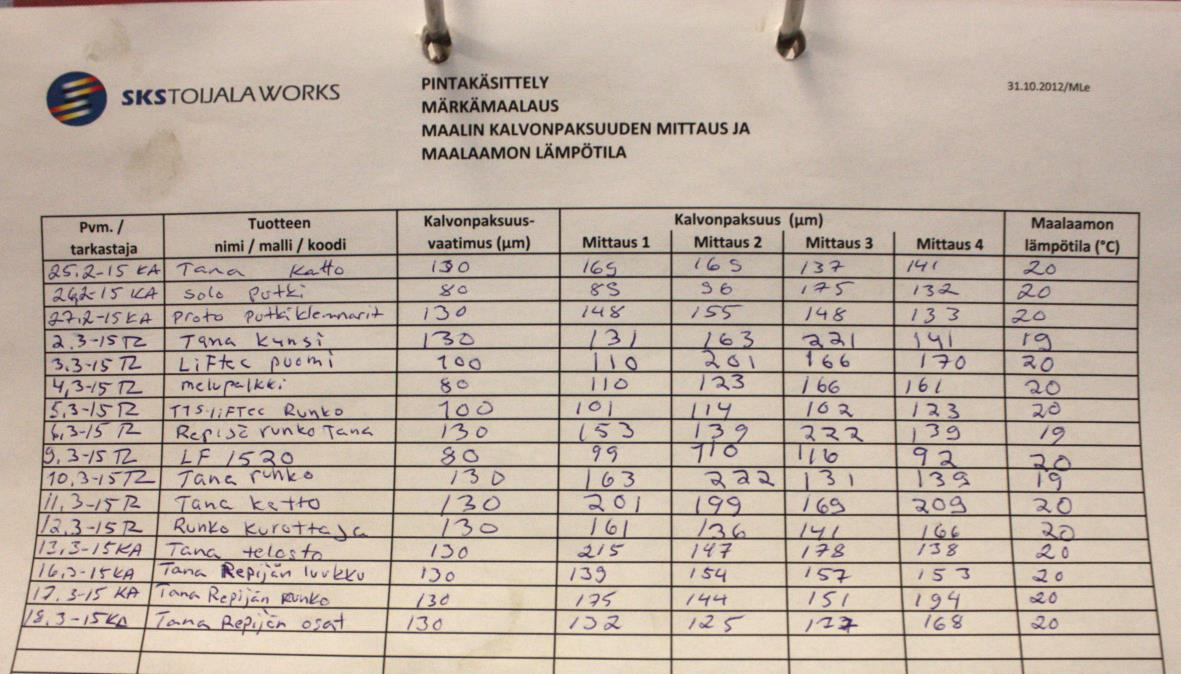 SKS TOIJALA WORKS
PINTAKÄSITTELY
MÄRKÄMAALAUS
MAALIN KALVONPAKSUUDEN MITTAUS JA
MAALAAMON LÄMPÖTILA
31.10.2012/MLe
Pvm. / tarkastaja Tuotteen nimi / malli / koodi Kalvonpaksuus-vaatimus (µm) Kalvonpaksuus (µm) Mittaus 1 Mittaus 2 Mittaus 3 Mittaus 4 Maalaamon lämpötila (°C)
25.2-15 KA Tana Katto 130 165 165 137 141 20
26.2-15 KA Solo putki 80 85 96 175 132 20
27.2-15 KA Proto putkiklemmarit 130 148 155 148 133 20
2.3-15 TZ Tana Kynsi 130 131 163 221 141 19
3.3-15 TZ Liftec puomi 100 110 201 166 170 20
4.3-15 TZ melupalkki 80 110 123 166 161 20
5.3-15 TZ TTS-liFTec Runko 100 101 114 102 123 20
6.3-15 TZ Repijä runko Tana 130 153 139 222 139 19
9.3-15 TZ LF 1520 80 99 110 116 92 20
10.3-15 TZ Tana runko 130 163 222 131 139 19
11.3-15 TZ Tana katto 130 201 199 169 209 20
12.3-15 TZ Runko kurottaja 130 161 136 141 166 20
13.3-15 KA Tana telasto 130 215 147 178 138 20
16.3-15 KA Tana Repijän luukku 130 139 154 157 153 20
17.3-15 KA Tana Repijän Runko 130 175 144 151 194 20
18.3-15 KA Tana Repijän osat 130 132 125 168 20